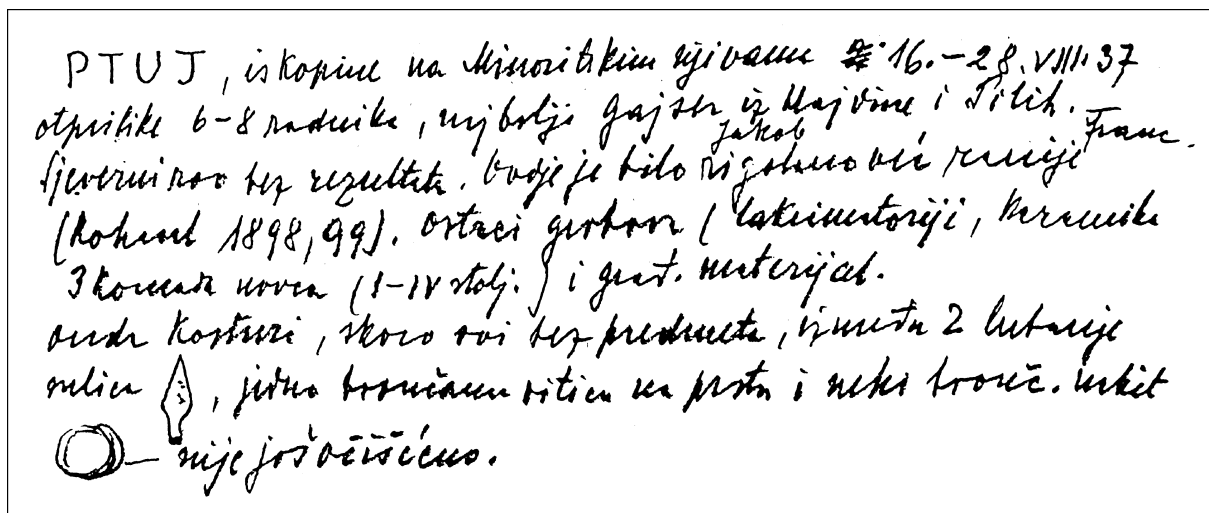 PTUJ, iskopine na Minoritskim njivama 16.–28. VIII. 37
otprilike 6–8 radnika, najbolji Gajser iz Hajdine i Pilih.
Jakob Franc.
Sjeverni rov bez rezultata. Ovdje je bilo rigolano već ranije
(Kohaut 1898, 99). Ostaci grobova (lakrimatoriji, keramika
3 komada novca (I–IV stolj.) i građ. materijal.
onda kosturi, skoro svi bez predmeta, između 2 lubanje
sulica, jedna brončana vitica na prstu i neki bronč. nakit
– nije još očišćeno.